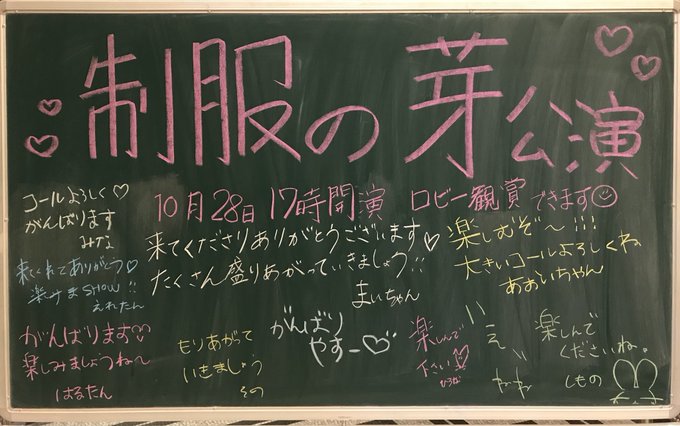 制服の芽公演
10月28日 17時開演 ロビー観賞できます
コールよろしく♡
がんばります
みな
来てくださりありがとうございます♡
たくさん盛りあがっていきましょう!!
まいちゃん
楽しむぞ〜!!!
大きいコールよろしくね
あおいちゃん
来てくれてありがとう♡
楽みまSHOW!!
えれたん
がんばります
楽しみましょうね〜
はるたん
もりあがって
いきましょう
その
がんばり
やすー♡
楽しんで
下さい
楽しんで
くださいね。
しもの